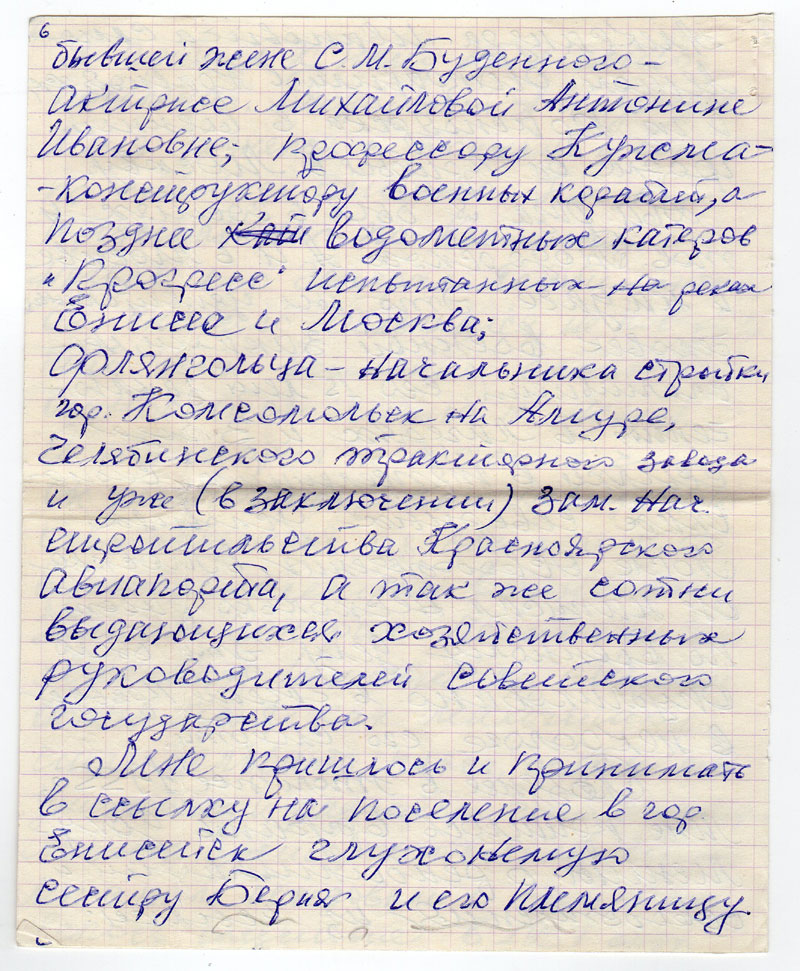 6
бывшей жене С.М. Буденного –
актрисе Михайловой Антонине
Ивановне; профессору Кужма-
-конструктору военных кораблей, а
позднее водометных катеров
"Прогресс" испытанных на реках
Енисее и Москва;
Орлянгольца – начальника стройки
гор. Комсомольск на Амуре,
Челябинского тракторного завода
и уже (в заключении) зам. нач.
строительства Красноярского
авиапорта, а так же сотни
выдающихся хозяйственных
руководителей советского
государства.
Мне пришлось и принимать
в ссылку на поселение в гор
Енисейск глухонемую
сестру Берия и его племяницу.